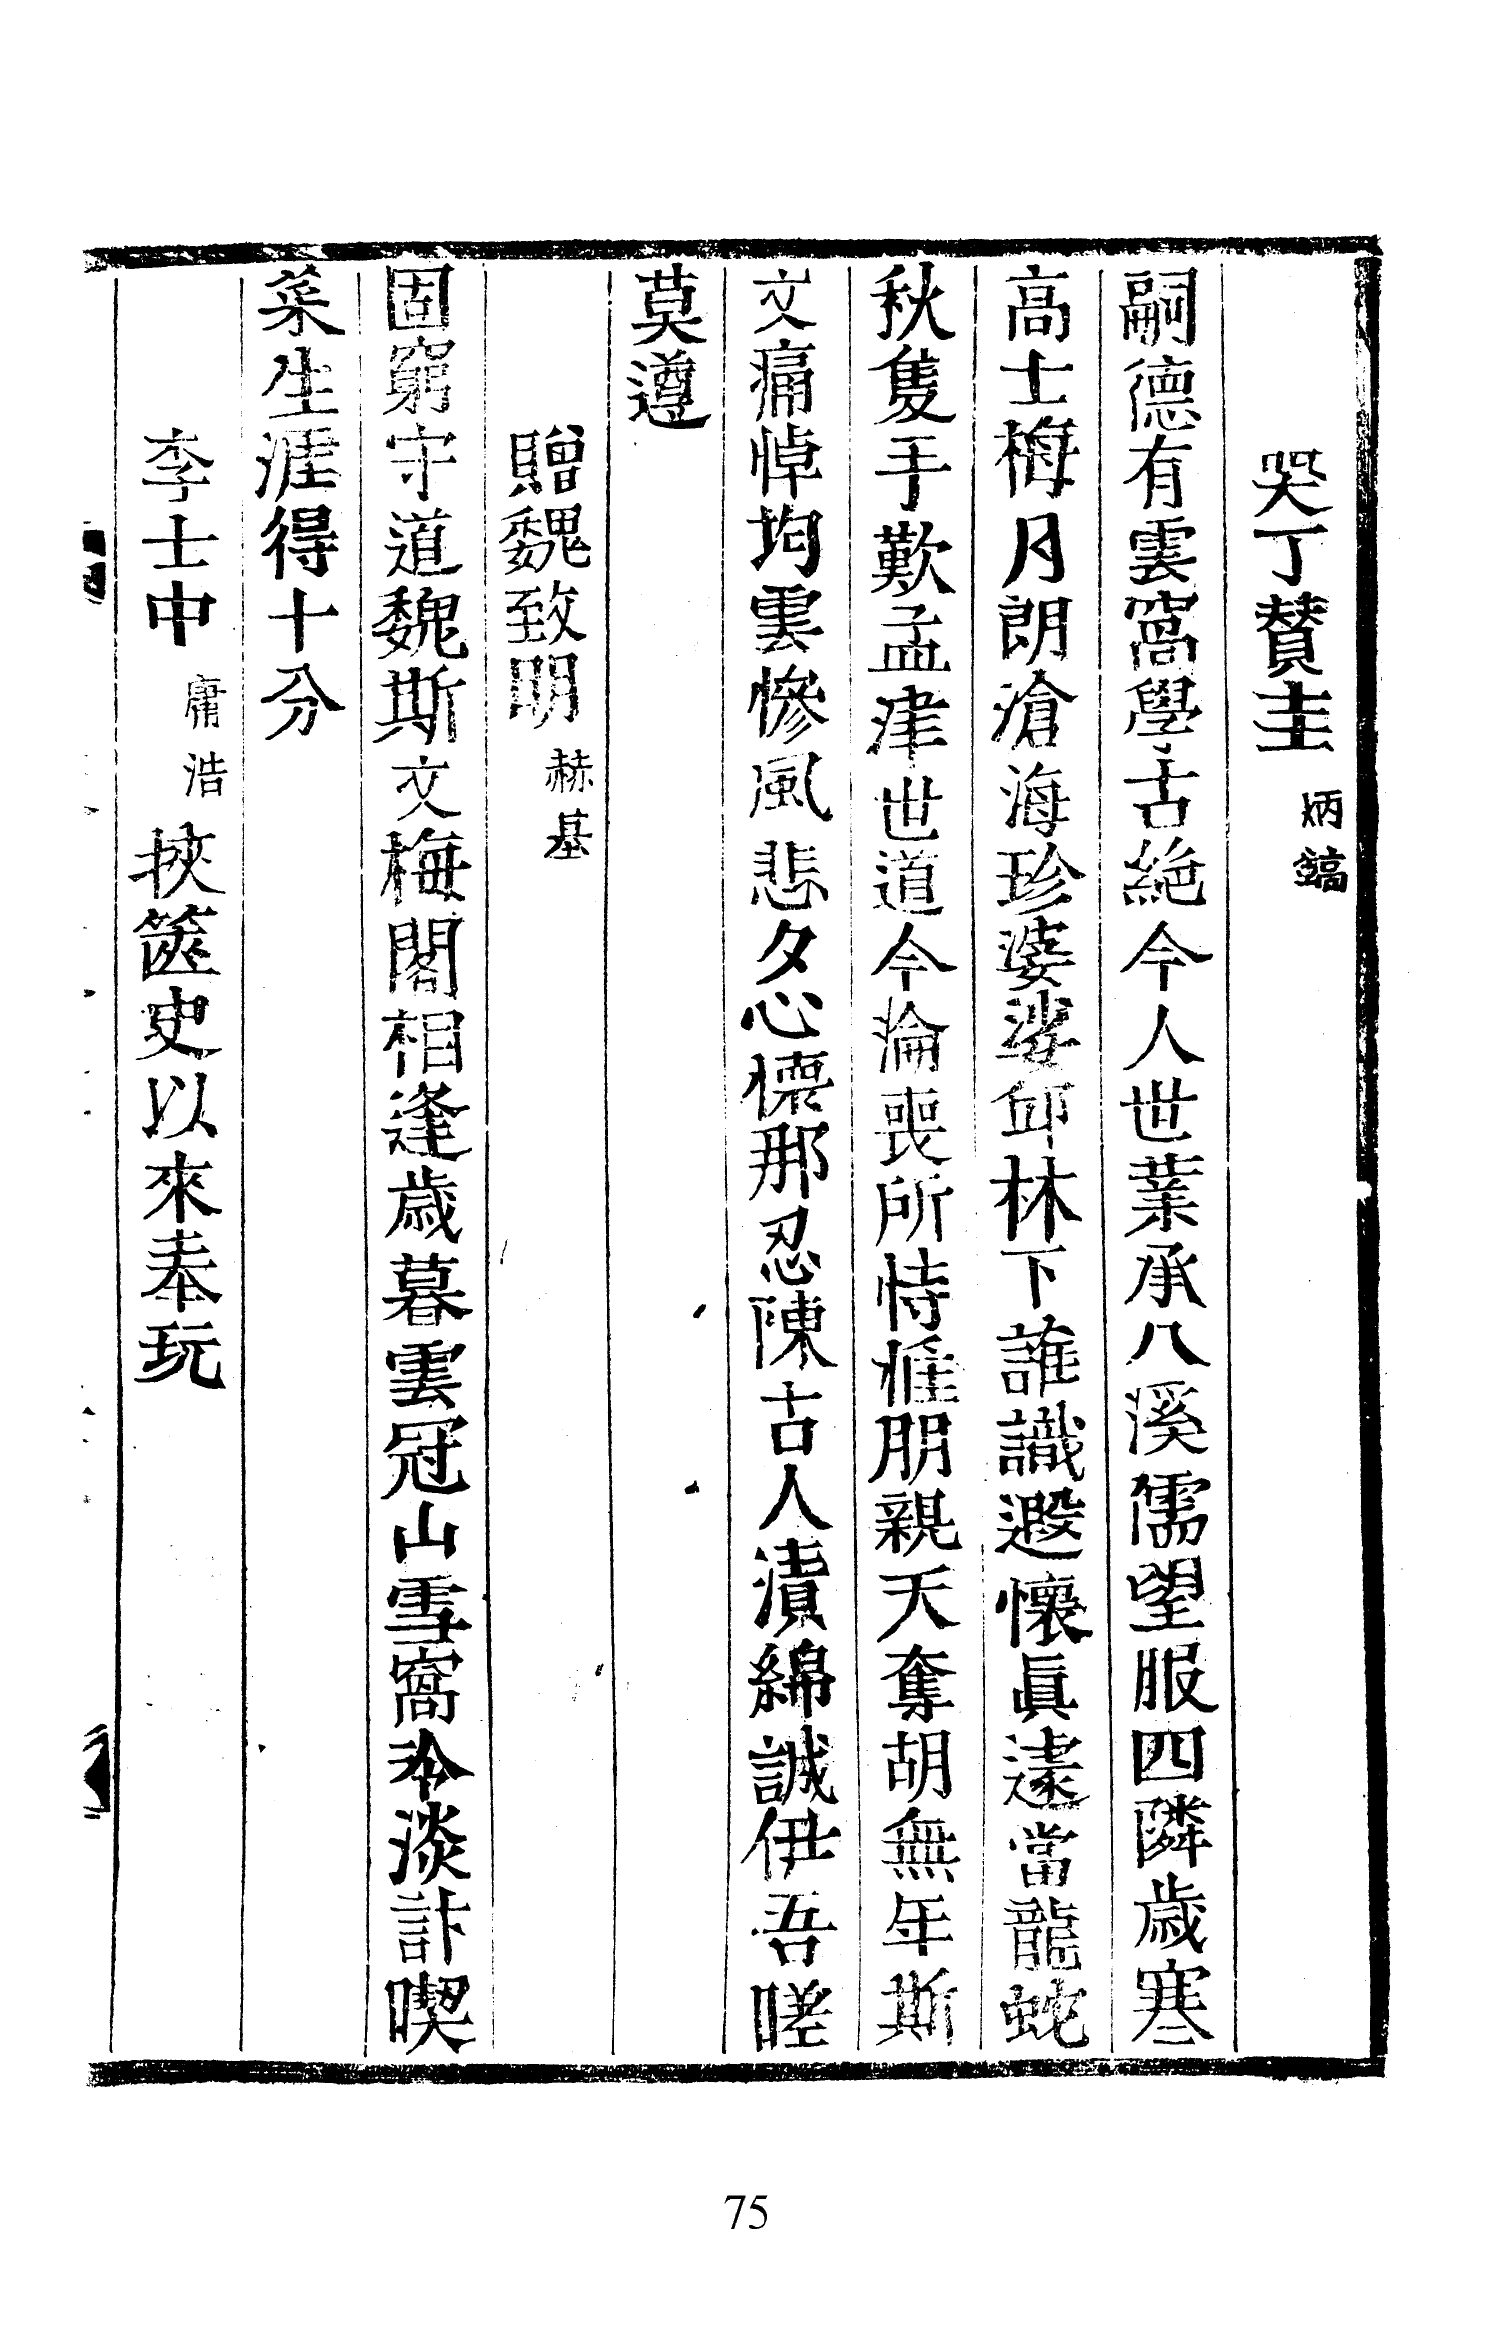 哭丁賛圭炳鎬
嗣德有雲窩學古絶今人世業承八溪儒望服四隣歲寒
高士梅月朗滄海珍婆娑邱林下誰識遐懷眞逮當龍蛇
秋隻手歎孟津世道今淪喪所恃惟朋親天奪胡無年斯
文痛悼均雲惨風悲夕心德那忍陳古人漬綿誠伊吾嗟
莫遵
贈魏致明赫基
固窮守道魏斯文梅閣相逢歲暮雲冠山雪窩冷淡計喫
菜生涯得十分
李士中庸浩挾篋史以來奉玩
75